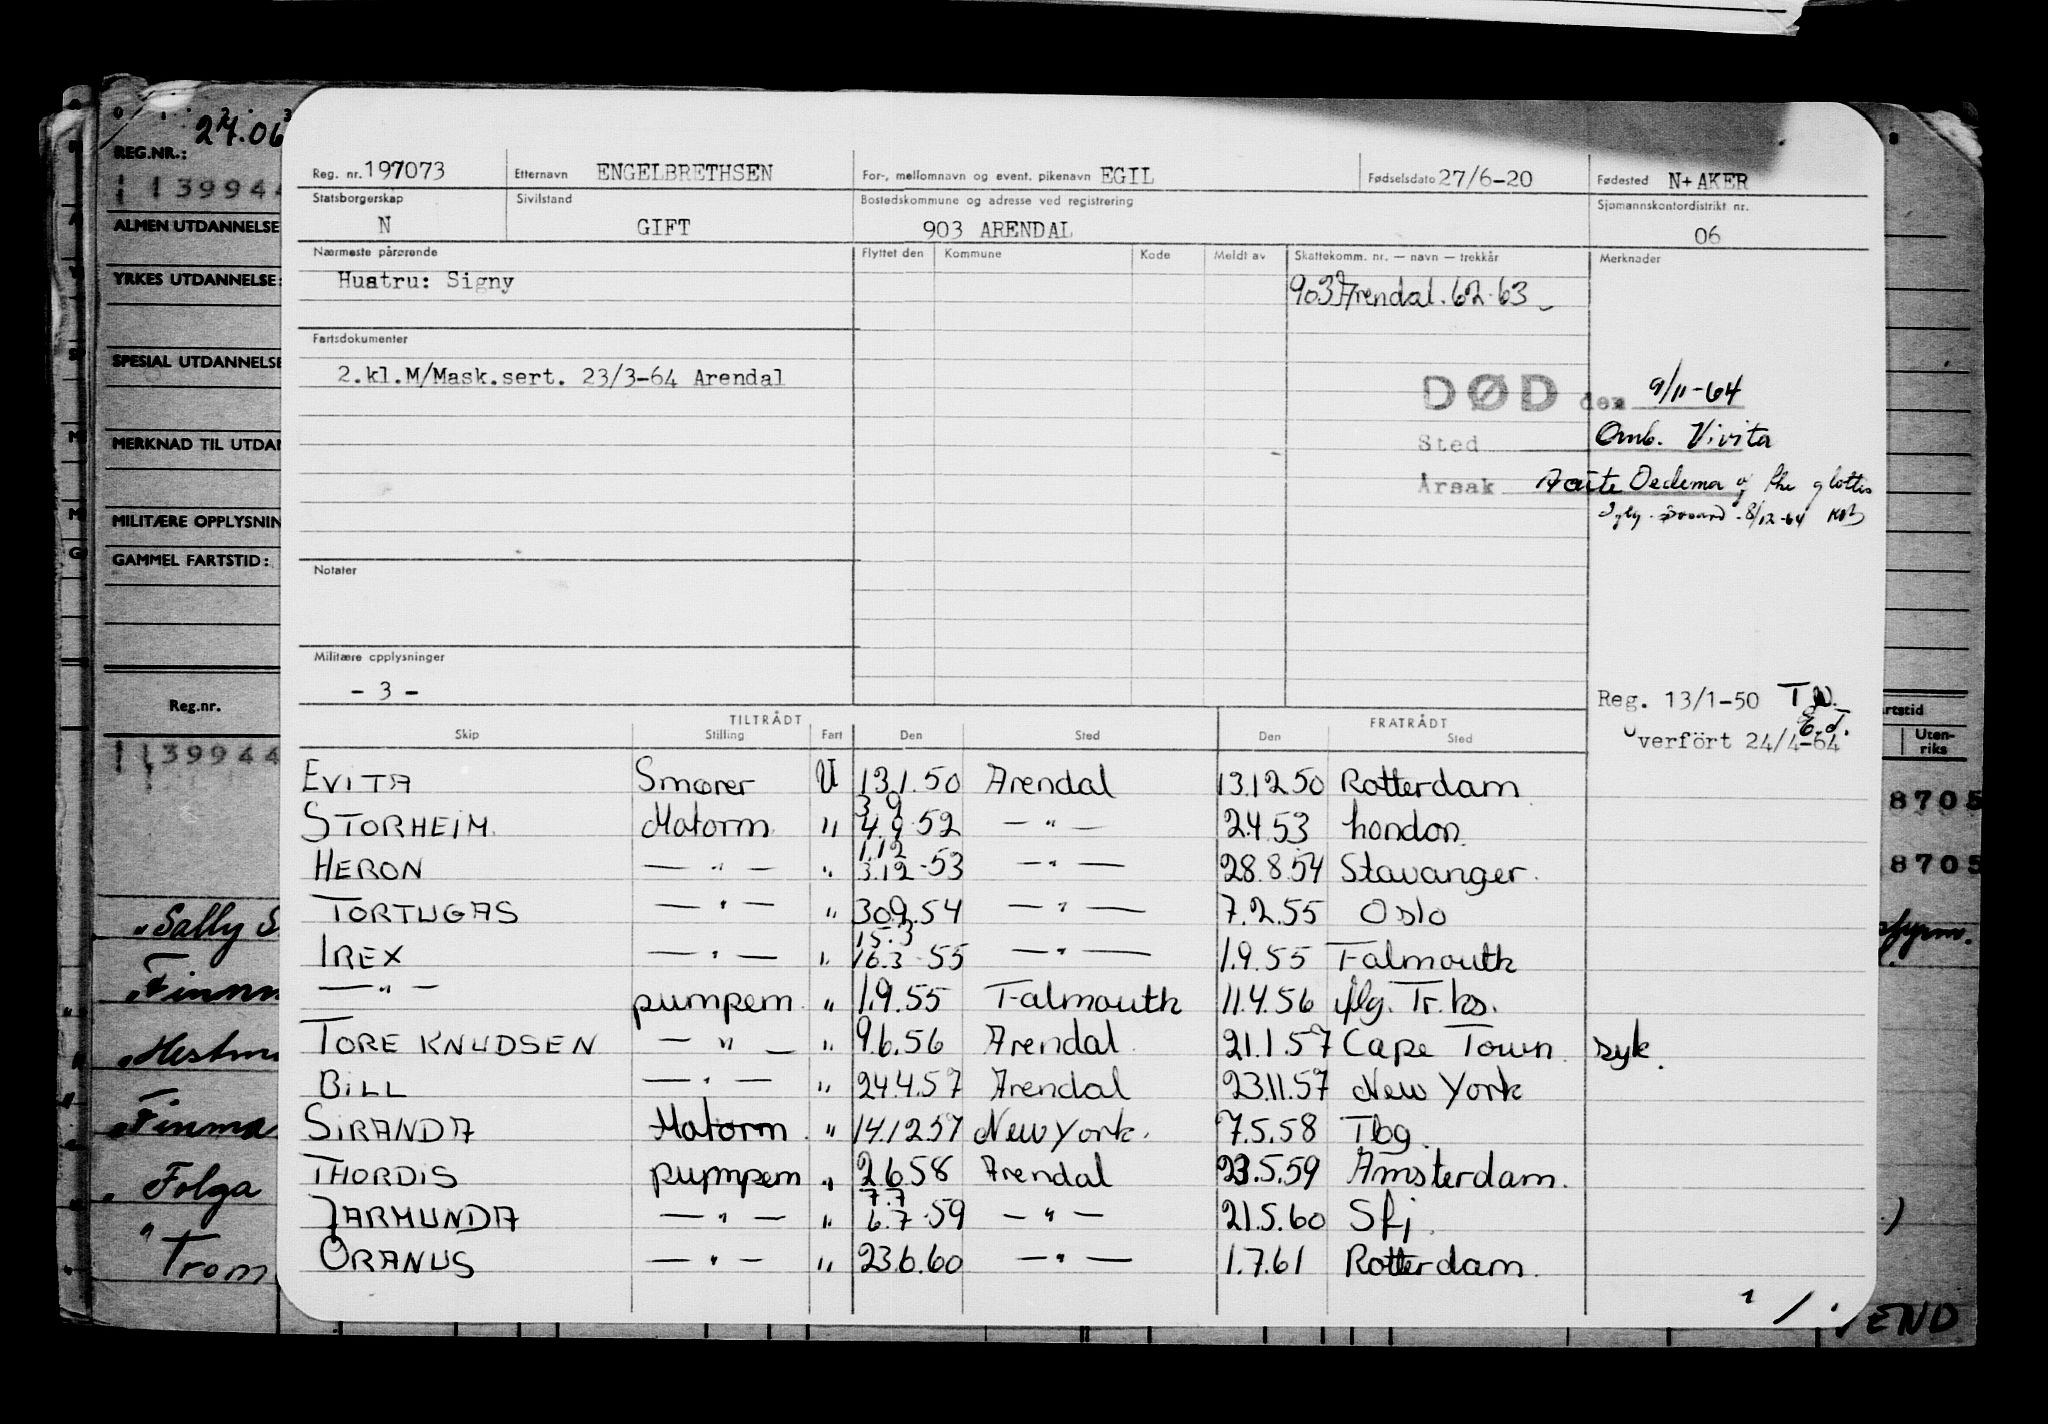 24.06
REG.NR.:
139944
ALMEN UTDANNELSE
YRKES UTDANNELSE:
SPESIAL UTDANNELSE
MERKNAD TIL UTDAN
MILITÆRE OPPLYSNIN
GAMMEL FARTSTID:
Reg.nr.
139944
Sally S
Finnm
Hestm
Finma
Folga
Trom
Reg. nr. 197073 Etternavn ENGELBRETHSEN For-, mellomnavn og event. pikenavn EGIL Fødselsdato 27/6-20 Fødested N+ AKER
Statsborgerskap Sivilstand Bostedskommune og adresse ved registrering Sjømannskontordistrikt nr.
N GIFT 903 ARENDAL 06
Nærmeste pårørende Flyttet den Kommune Kode Meldt av Skattekomm. nr. — navn — trekkår Merknader
Hustru: Signy 903 Arendal. 62-63
Fartsdokumenter
2.kl.M/Mask.sert. 23/3-64 Arendal
DØD den 9/11-64
Sted Omb. Vivita
Årsak Acute Oedema of the glottis
8/12-64
Notater
Militære opplysninger
- 3 -
Reg. 13/1-50 T.W.
E.T.
Overfört 24/4-64
TILTRÅDT FRATRÅDT
Skip Stilling Fart Den Sted Den Sted
EVITA Smører U 13.1.50 Arendal 13.12.50 Rotterdam
3 9
STORHEIM. Matorm " 4.9.52 — " — 2.4.53 London.
1.12
HERON — " — " 3.12.53 — " — 28.8.54 Stavanger.
TORTUGAS — " — " 30.9.54 — " — 7.2.55 Oslo
15.3
IREX — " — " 16.3.55 — " — 1.9.55 Falmouth
— " — pumpem. " 1.9.55 Falmouth 11.4.56 flg. Tr.hs.
TORE KNUDSEN — " — " 9.6.56 Arendal. 21.1.57 Cape Town. syk.
BILL — " — " 24.4.57 Arendal 23.11.57 New York
SIRANDA Matorm. " 14.12.57 New York. 7.5.58 Tbg.
THORDIS pumpem " 2.6.58 Arendal 23.5.59 Amsterdam.
7.7
JARMUNDA — " — " 6.7.59 — " — 21.5.60 Sfj.
ORANUS — " — " 23.6.60 — " — 1.7.61 Rotterdam.
rtstid
Uten-
riks
8705
8705
END